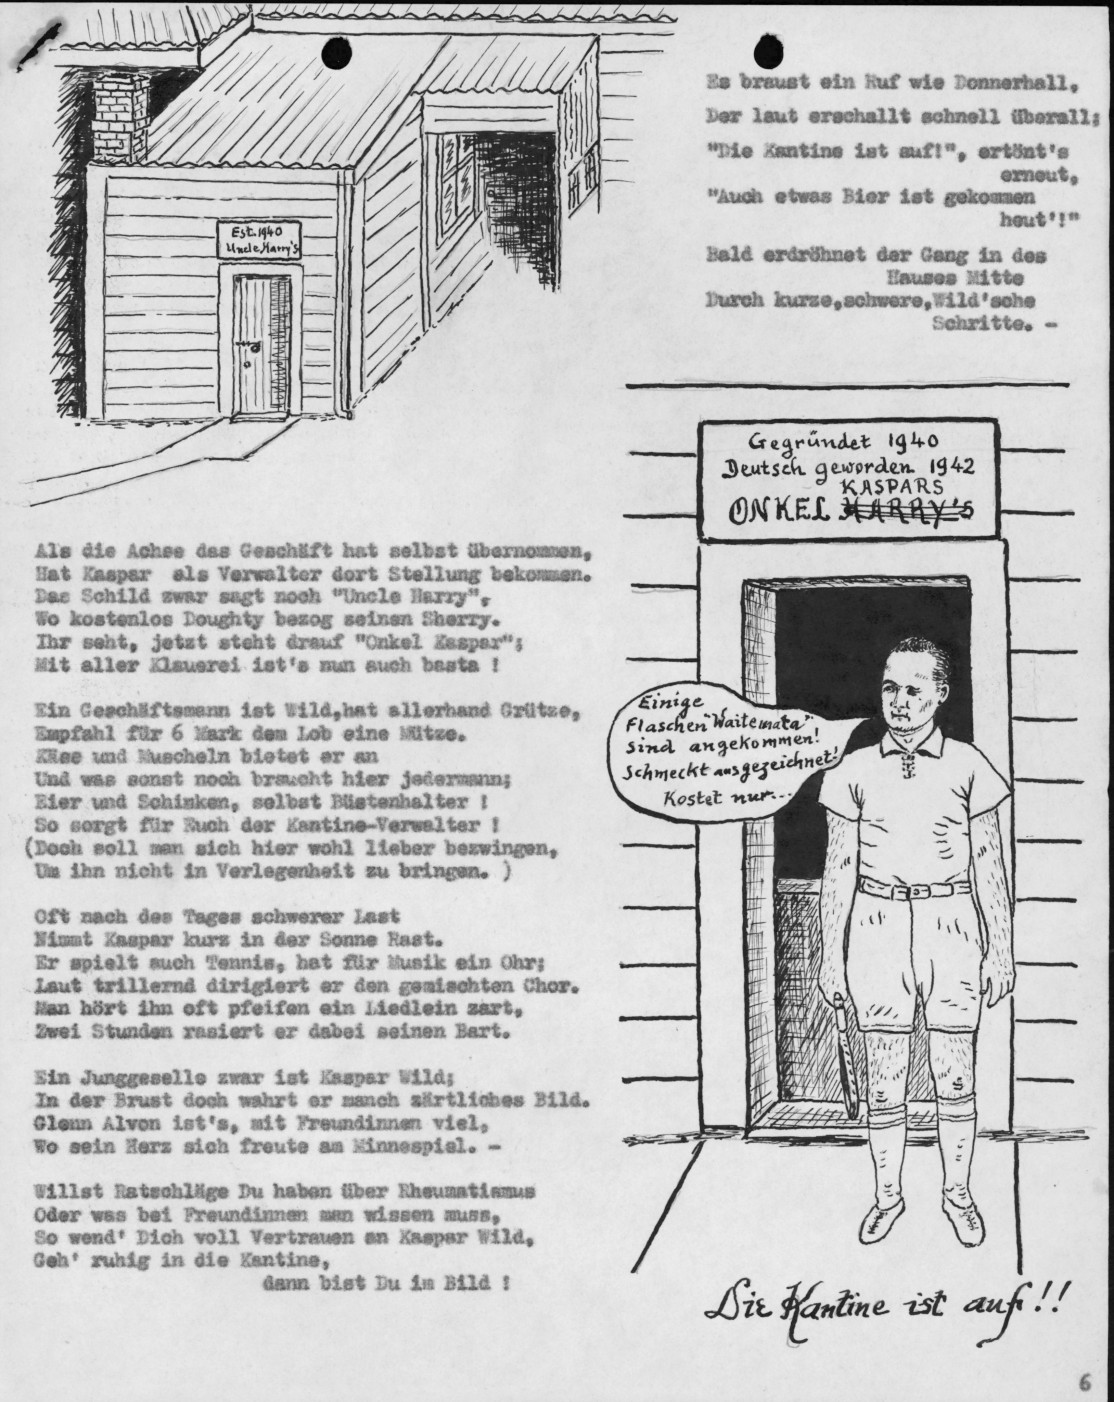 Est. 1940
Uncle Harry's
Es braust ein Ruf wie Donnerhall,
Der laut erschallt schnell überall;
"Die Kantine ist auf!", ertönt's
erneut,
"Auch etwas Bier ist gekommen
heut'!"
Bald erdröhnet der Gang in des
Hauses Mitte
Durch kurze,schwere,Wild'sche
Schritte. -
Gegründet 1940
Deutsch geworden 1942
KASPARS
ONKEL HARRY'S
Einige
Flaschen "Waitemata"
sind angekommen!
Schmeckt ausgezeichnet!
Kostet nur...
Die Kantine ist auf!!
Als die Achse das Geschäft hat selbst übernommen,
Hat Kaspar als Verwalter dort Stellung bekommen.
Das Schild zwar sagt noch "Uncle Harry",
Wo kostenlos Doughty bezog seinen Sherry.
Ihr seht, jetzt steht drauf "Onkel Kaspar";
Mit aller Klauerei ist's nun auch basta !
Ein Geschäftsmann ist Wild,hat allerhand Grütze,
Empfahl für 6 Mark dem Lob eine Mütze.
Käse und Muscheln bietet er an
Und was sonst noch braucht hier jedermann;
Eier und Schinken, selbst Büstenhalter !
So sorgt für Euch der Kantine-Verwalter !
(Doch soll man sich hier wohl lieber bezwingen,
Um ihn nicht in Verlegenheit zu bringen. )
Oft nach des Tages schwerer Last
Nimmt Kaspar kurz in der Sonne Rast.
Er spielt auch Tennis, hat für Musik ein Ohr;
Laut trillernd dirigiert er den gemischten Chor.
Man hört ihn oft pfeifen ein Liedlein zart,
Zwei Stunden rasiert er dabei seinen Bart.
Ein Junggeselle zwar ist Kaspar Wild;
In der Brust doch wahrt er manch zärtliches Bild.
Glenn Alvon ist's, mit Freundinnen viel,
Wo sein Herz sich freute am Minnespiel. -
Willst Ratschläge Du haben über Rheumatismus
Oder was bei Freundinnen man wissen muss,
So wend' Dich voll Vertrauen an Kaspar Wild,
Geh' ruhig in die Kantine,
dann bist Du im Bild !
6